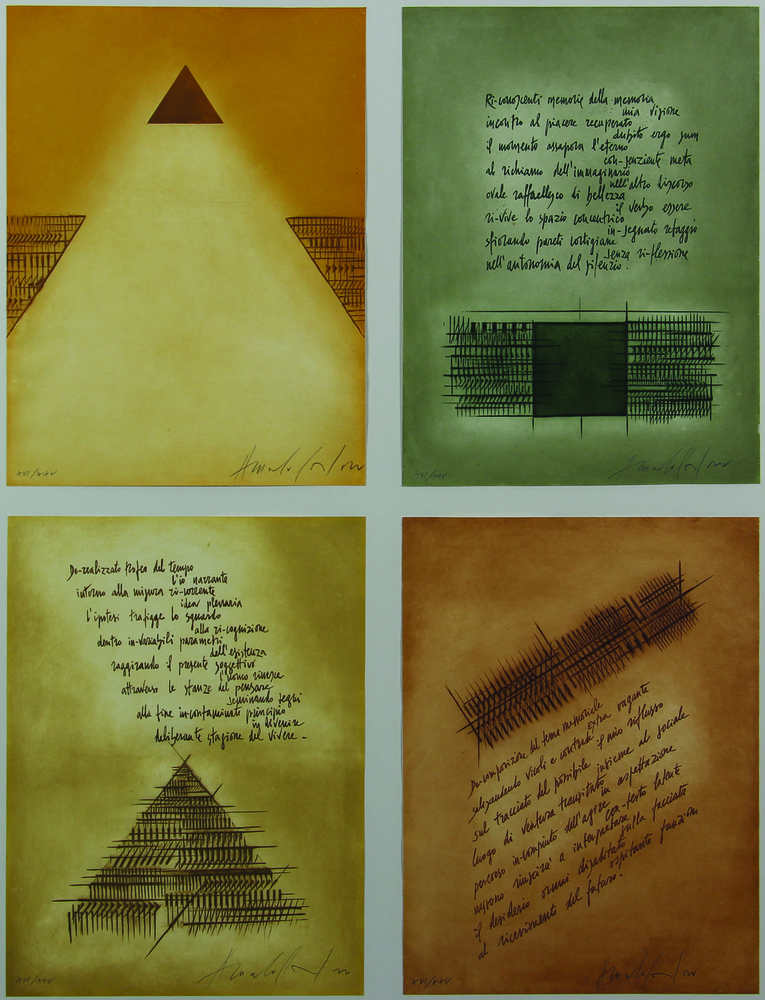 XVI/XXV
Ri-conoscenti memorie della memoria
mia visione
incontro al piacere recuperato
dubito ergo sum
il momento assapora l'eterno
con-senziente meta
al richiamo dell'immaginario
nell'altro discorso
ovale raffaellesco di bellezza
il verso essere
ri-vive lo spazio concentrico
in-segnato retaggio
sfiorando pareti cortigiane
senza ri-flessione
nell'autonomia del silenzio.
XVI/XXV
De-realizzato trofeo del tempo
l'io narrante
intorno alla misura ri-corrente
idea plenaria
l'ipotesi trafigge lo sguardo
alla ri-cognizione
dentro in-variabili parametri
dell'esistenza
raggirando il presente soggettivo
l'uomo riesce
attraverso le stanze del pensare
seminando segni
alla fine incontaminato principio
in divenire
deliberante stagione del vivere.
XVI/XXV
De-composizione del tema memoriale
scavalcando vicoli e contrade extra vagante
sul tracciato del possibile il mio riflusso
luogo di ventura transitato insieme al sociale
percorso in-compiuto dell'agire in aspettazione
nessuno riuscirà a interpretare con-testo latente
il desiderio ormai disabitato sulla facciata
al ricevimento del futuro. ospitante funzioni
XVI/XXV